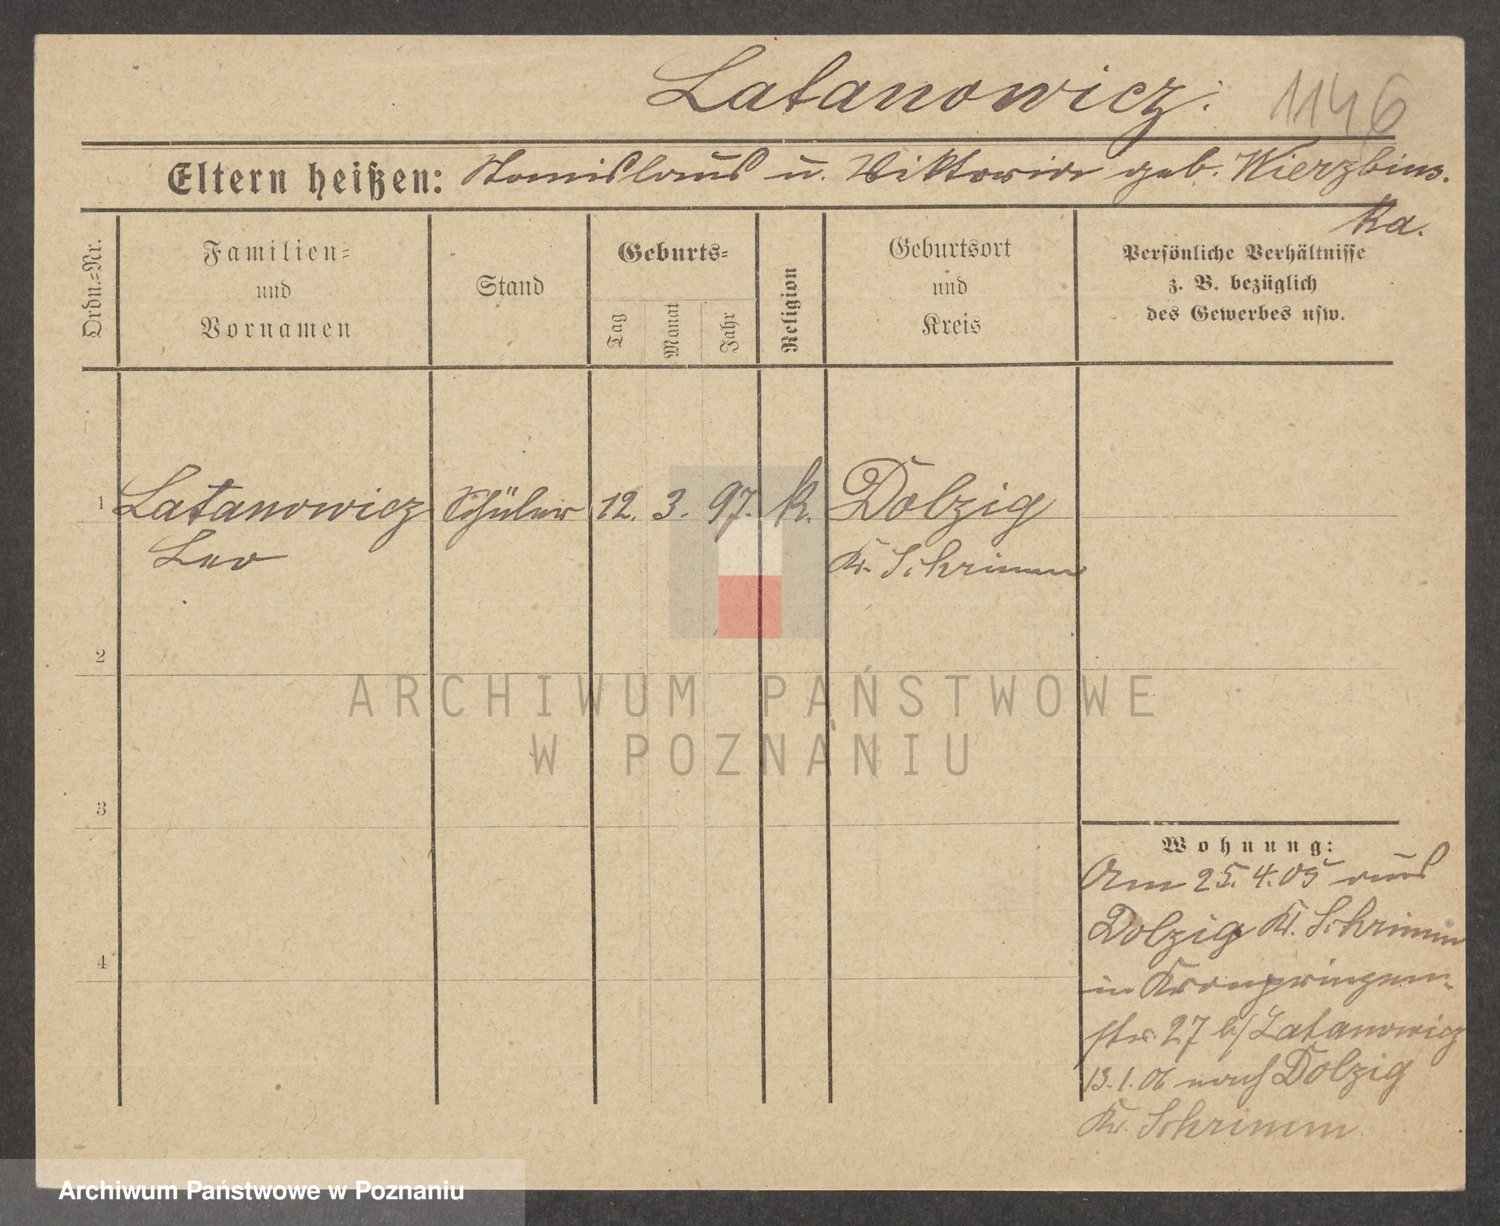 Latanowicz.
1146
Eltern heißen: Stanislaus u. Viktoria geb. Wierzbins-
ka.
Ordn.=Nr.
Familien=
und
Vornamen
Stand
Geburts=
Tag
Monat
Jahr
Religion
Geburtsort
und
Kreis
Persönliche Verhältnisse
z. B. bezüglich
des Gewerbes usw.
1 Latanowicz Schüler 12. 3. 97. k. Dolzig
Leo Kr. Schrimm
2
3
4
Wohnung:
Am 25.4.05 aus
Dolzig Kr. Schrimm
in Kronprinzen-
str. 27 b/ Latanowicz
13.1.06 nach Dolzig
Kr. Schrimm
ARCHIWUM PAŃSTWOWE
W POZNANIU
Archiwum Państwowe w Poznaniu